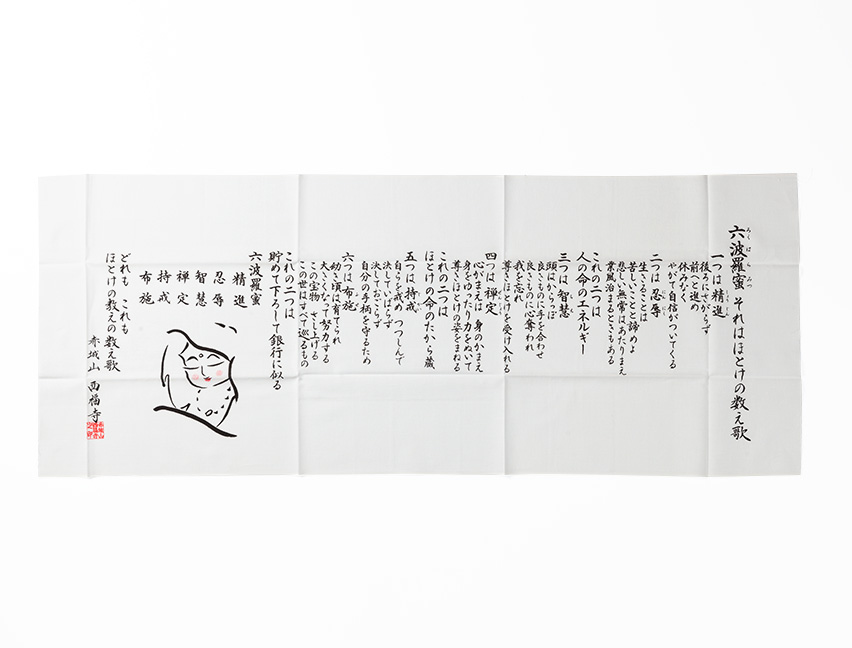 六波羅蜜 それはほとけの数え歌
ろくはらみつ
一つは精進
後ろにさがらず
前へと進め
休みなく
やがて自信がついてくる
二つは忍辱
生きることは
苦しいことと諦めよ
悲しい無常はあたりまえ
業風治まるときもある
これの二つは
人の命のエネルギー
三つは智慧
頭はからっぽ
良きものに手を合わせ
良きものに心奪われ
我を忘れ
尊きほとけを受け入れる
四つは禅定
心がまえは 身のかまえ
身をゆったり力をぬいて
尊きほとけの姿をまねる
これの二つは
ほとけの命のたから蔵
五つは持戒
自らを戒め つつしんで
決していばらず
決しておこらず
自分の手柄を守るため
六つは布施
幼き頃は育てられ
大きくなって努力する
この宝物 さし上げる
この世はすべて巡るもの
これの二つは
貯めて下ろして銀行に似る
六波羅蜜
精進
忍辱
智慧
禅定
持戒
布施
どれも これも
ほとけの教えの数え歌
赤城山 西福寺